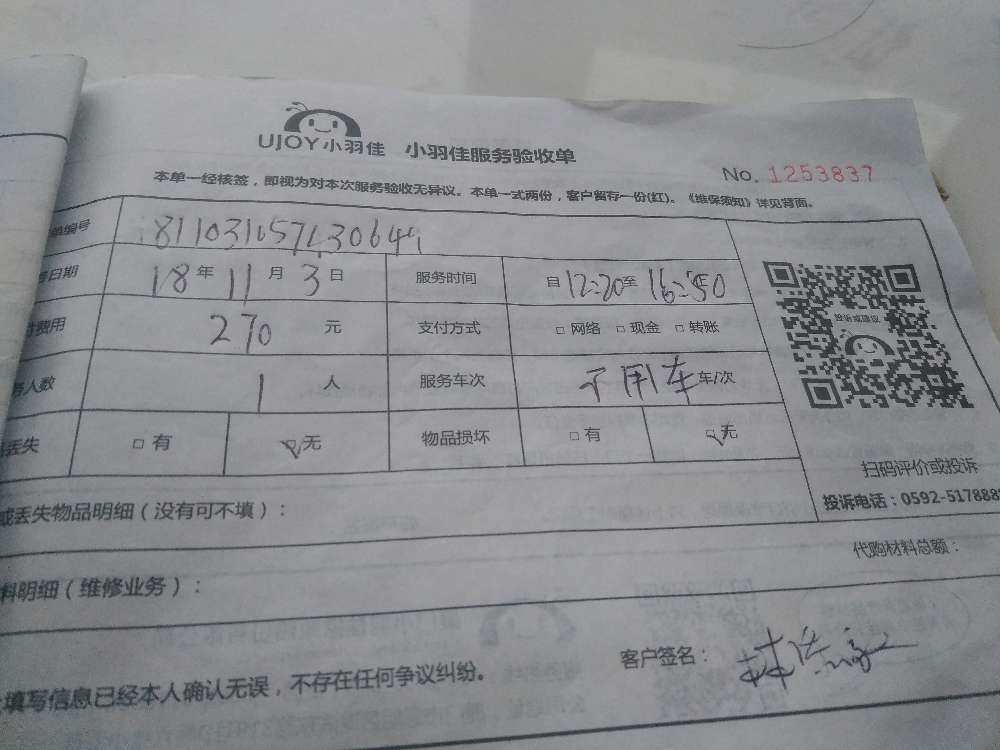 UJOY小羽佳 小羽佳服务验收单
No. 1253837
本单一经核签，即视为对本次服务验收无异议。本单一式两份，客户留存一份(红)。《维保须知》详见背面。
单编号 811031657430644
日期 18年11月3日 服务时间 自12:20至16:50
费用 270元 支付方式 □网络 □现金 □转账
人数 1人 服务车次 不用车 车/次
丢失 □有 ☑无 物品损坏 □有 ☑无
投诉或建议
扫码评价或投诉
投诉电话：0592-517888
或丢失物品明细（没有可不填）：
代购材料总额：
料明细（维修业务）：
填写信息已经本人确认无误，不存在任何争议纠纷。
客户签名：林